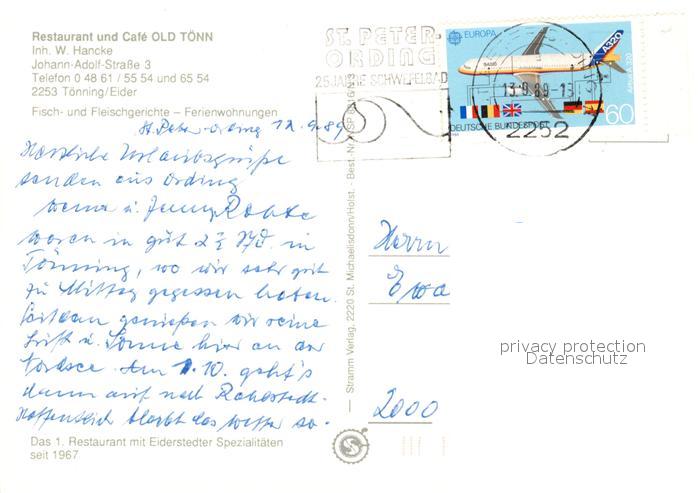 Restaurant und Café OLD TÖNN
Inh. W. Hancke
Johann-Adolf-Straße 3
Telefon 0 48 61 / 55 54 und 65 54
2253 Tönning/Eider
Fisch- und Fleischgerichte – Ferienwohnungen
St. Peter-Ording 12.9.89
Herzliche Urlaubsgrüße
senden aus Ording
u. Jenny
waren in gut 2½ Std. in
Tönning, wo wir sehr gut
zu Mittag gegessen haben.
Seitdem genießen wir reine
Luft u. Sonne hier an der
Nordsee. Am 1.10. geht's
dann auf nach
Hoffentlich bleibt das Wetter so.
Das 1. Restaurant mit Eiderstedter Spezialitäten
seit 1967
Stramm Verlag, 2220 St. Michaelisdonn/Holst. - Best.-Nr.
ST. PETER-
ORDING
25 JAHRE SCHWEFELBAD
EUROPA
A320
Airbus A320
60
DEUTSCHE BUNDESPOST
13.9.89-13
2252
Herrn
Ewa
2000
privacy protection
Datenschutz